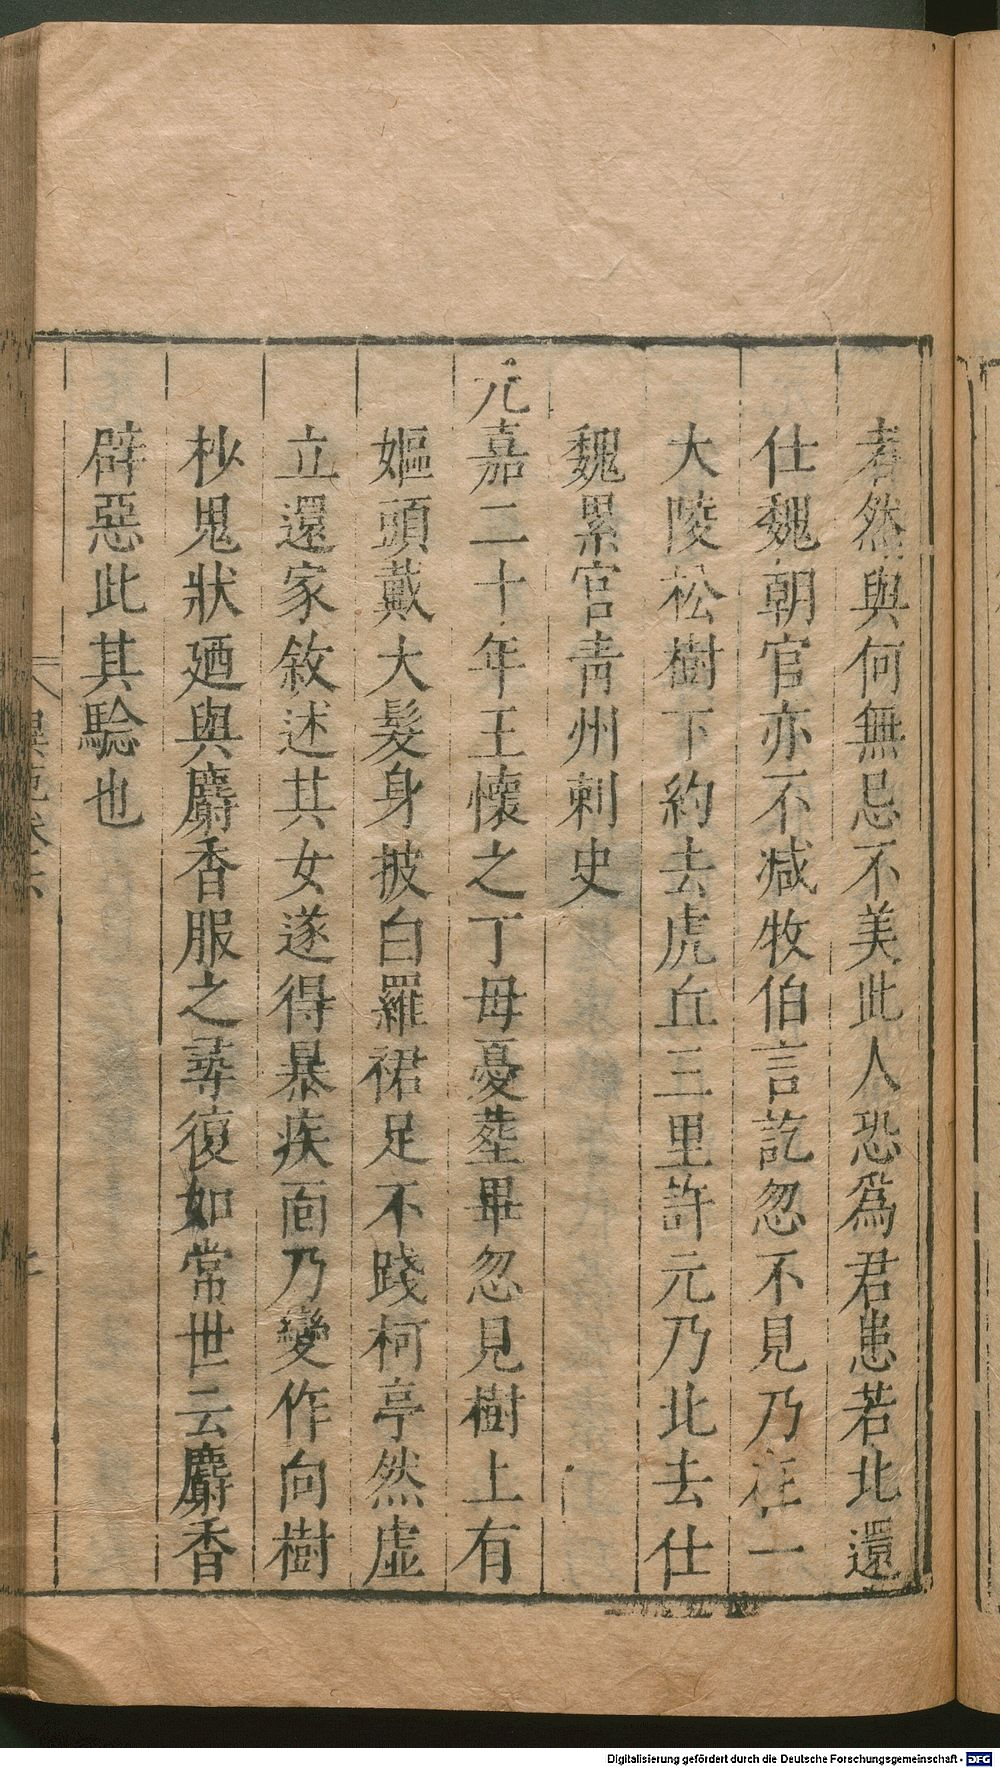 者然與何無忌不美此人恐爲君患若北還
仕魏朝官亦不减牧伯言訖忽不見乃在一
大陵松樹下約去虎丘三里許元乃北去仕
魏累官青州刺史
元嘉二十年王懷之丁母憂塟畢忽見樹上有
嫗頭戴大髮身披白羅裙足不踐柯亭然虛
立還家敘述其女遂得暴疾面乃變作向樹
杪鬼狀廼與麝香服之尋復如常世云麝香
辟惡此其驗也
異苑卷六
Digitalisierung gefördert durch die Deutsche Forschungsgemeinschaft - DFG